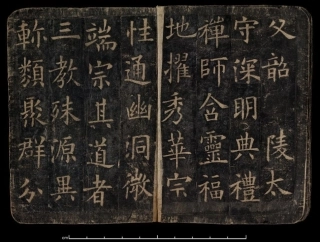 父韶陵太
守深明典禮
禪師含靈福
地擢秀華宗
性通幽洞微
端宗其道者
三教殊源異
軫類聚群分